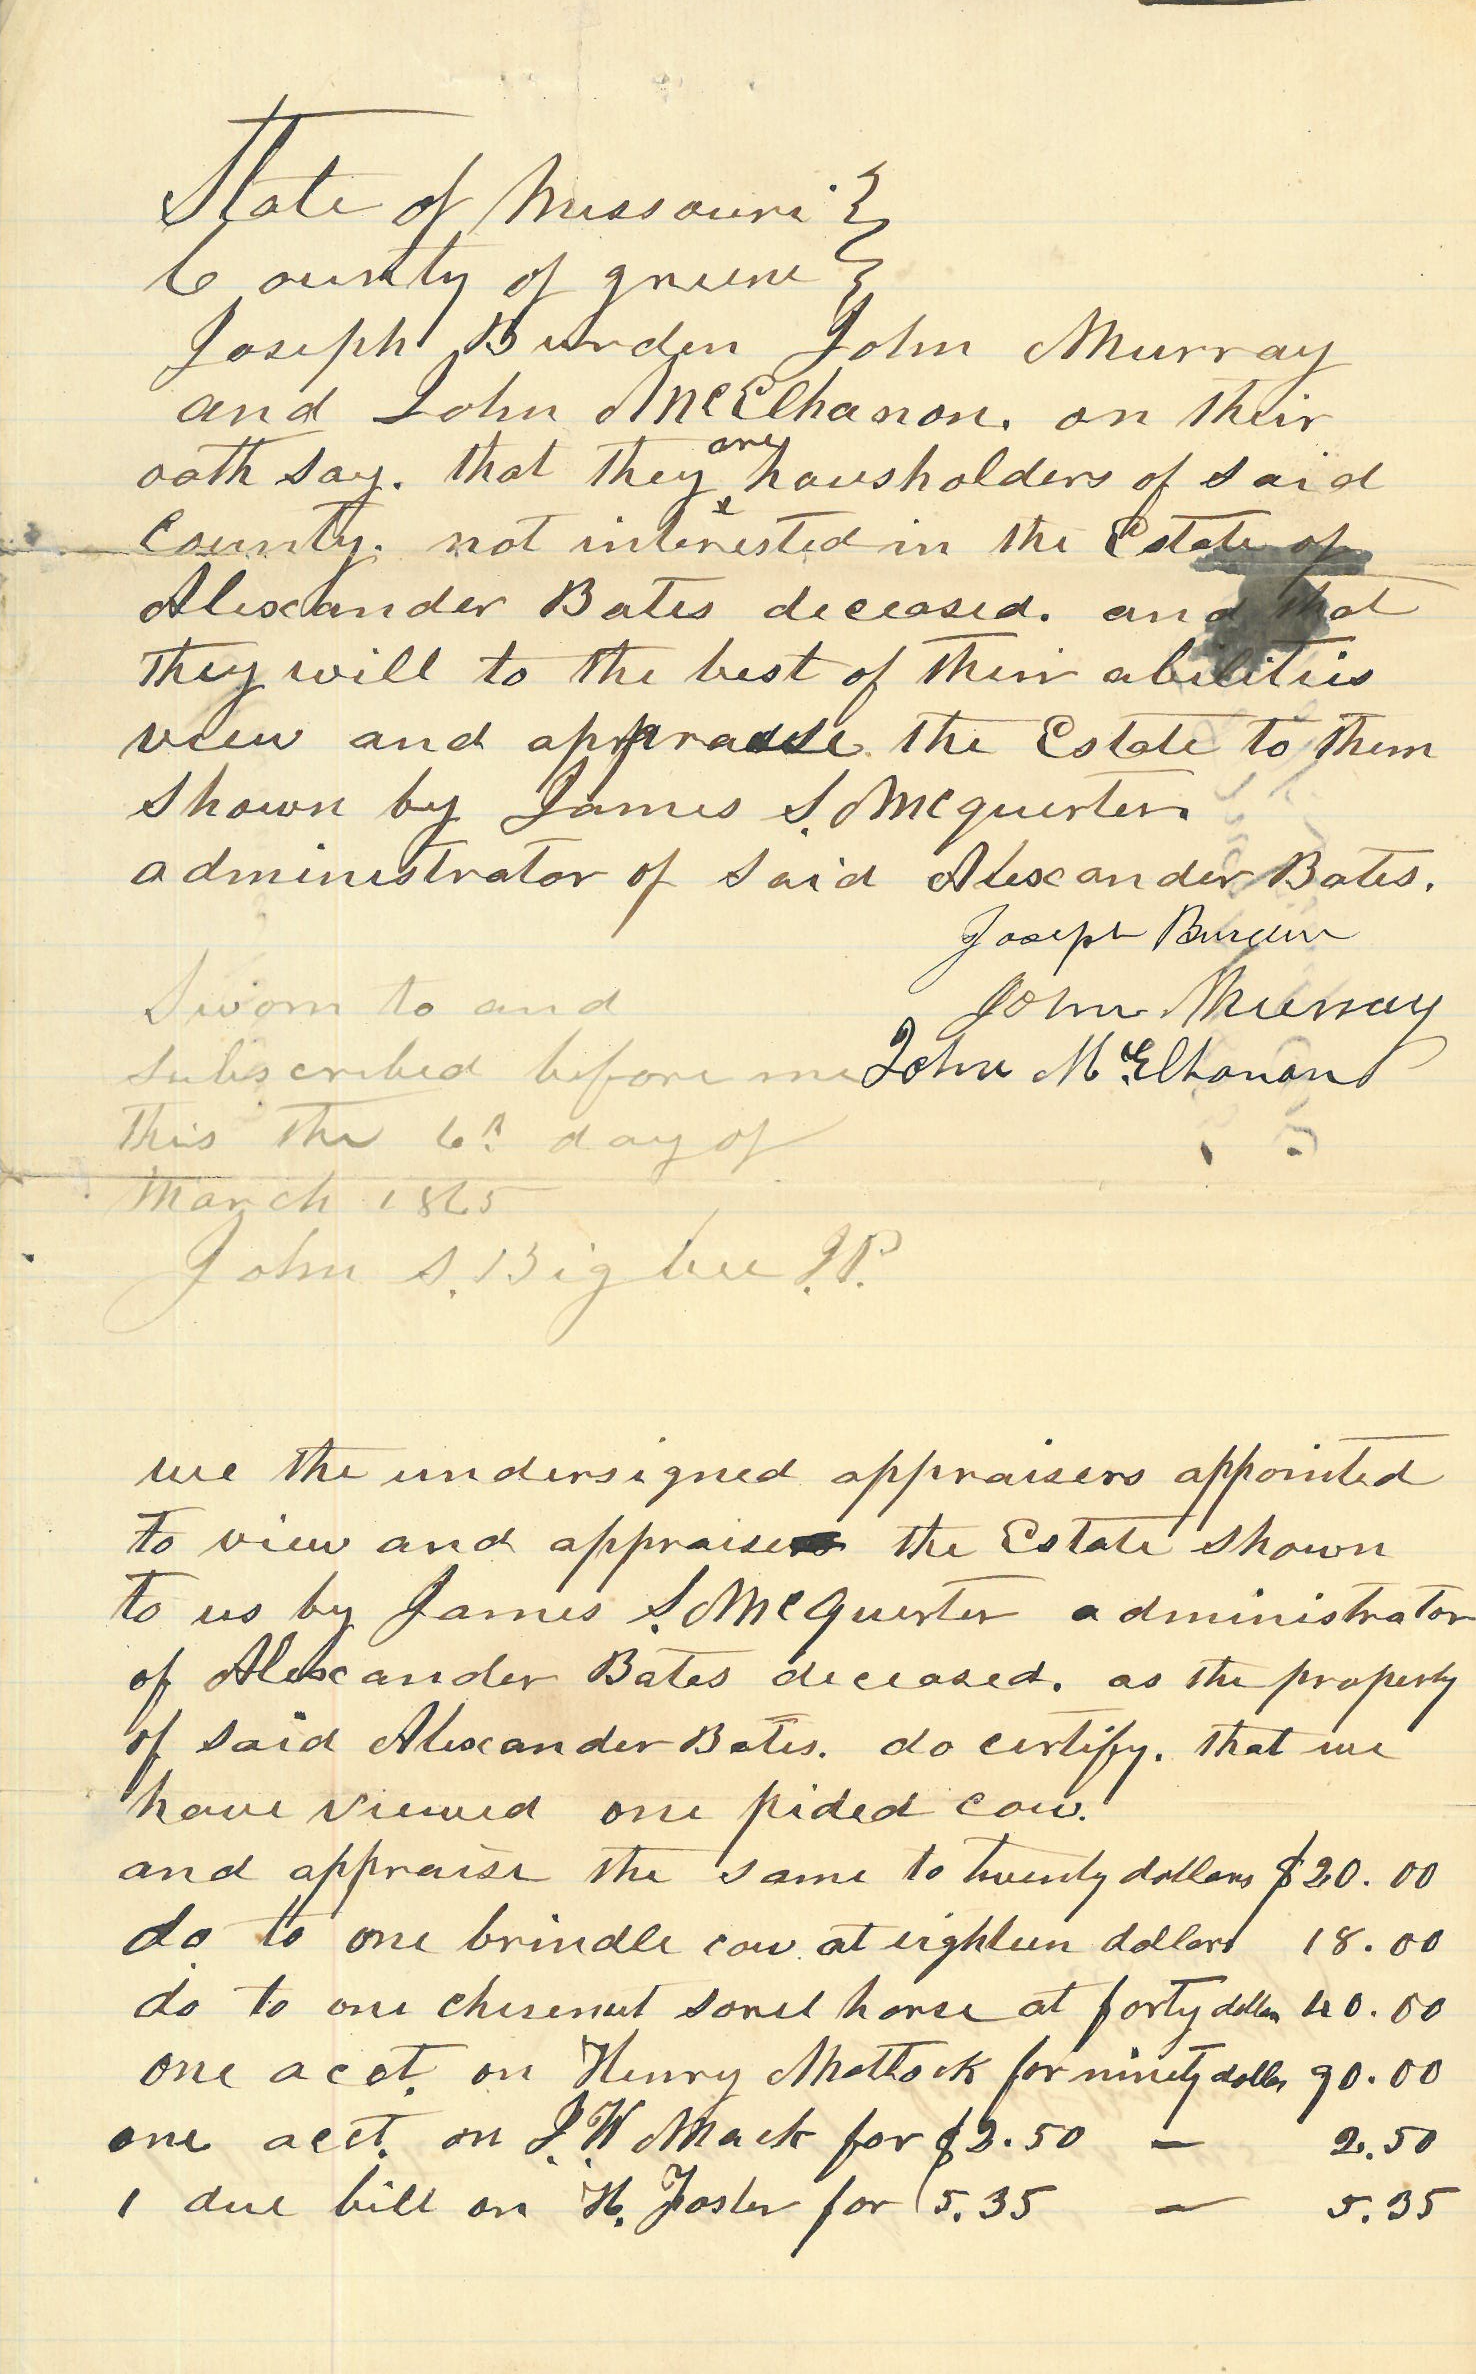 State of Missouri }
County of greene }
Joseph Burden John Murray
and John McElhanon. on their
oath say. that they are housholders of said
County. not interested in the Estate of
Alexander Bates deceased. and that
they will to the best of their abilities
view and appraise the Estate to them
shown by James S. Mcquerter.
administrator of said Alexander Bates.
Joseph Burden
Sworn to and John Murray
subscribed before me John McElhanon
this the 6th day of
March 1865
John S. Bigbee J.P.
we the undersigned appraisers appointed
to view and appraise the Estate shown
to us by James S. McQuerter administrator
of Alexander Bates deceased. as the property
of said Alexander Bates. do certify. that we
have viewed one pided cow.
and appraise the same to twenty dollars $20.00
do to one brindle cow at eighteen dollars 18.00
do to one chesenut sorrel horse at forty dollars 40.00
one acct. on Henry Matlock for ninety dollars 90.00
one acct. on J. W Mack for $2.50 — 2.50
1 due bill on H. Foster for 5.35 — 5.35